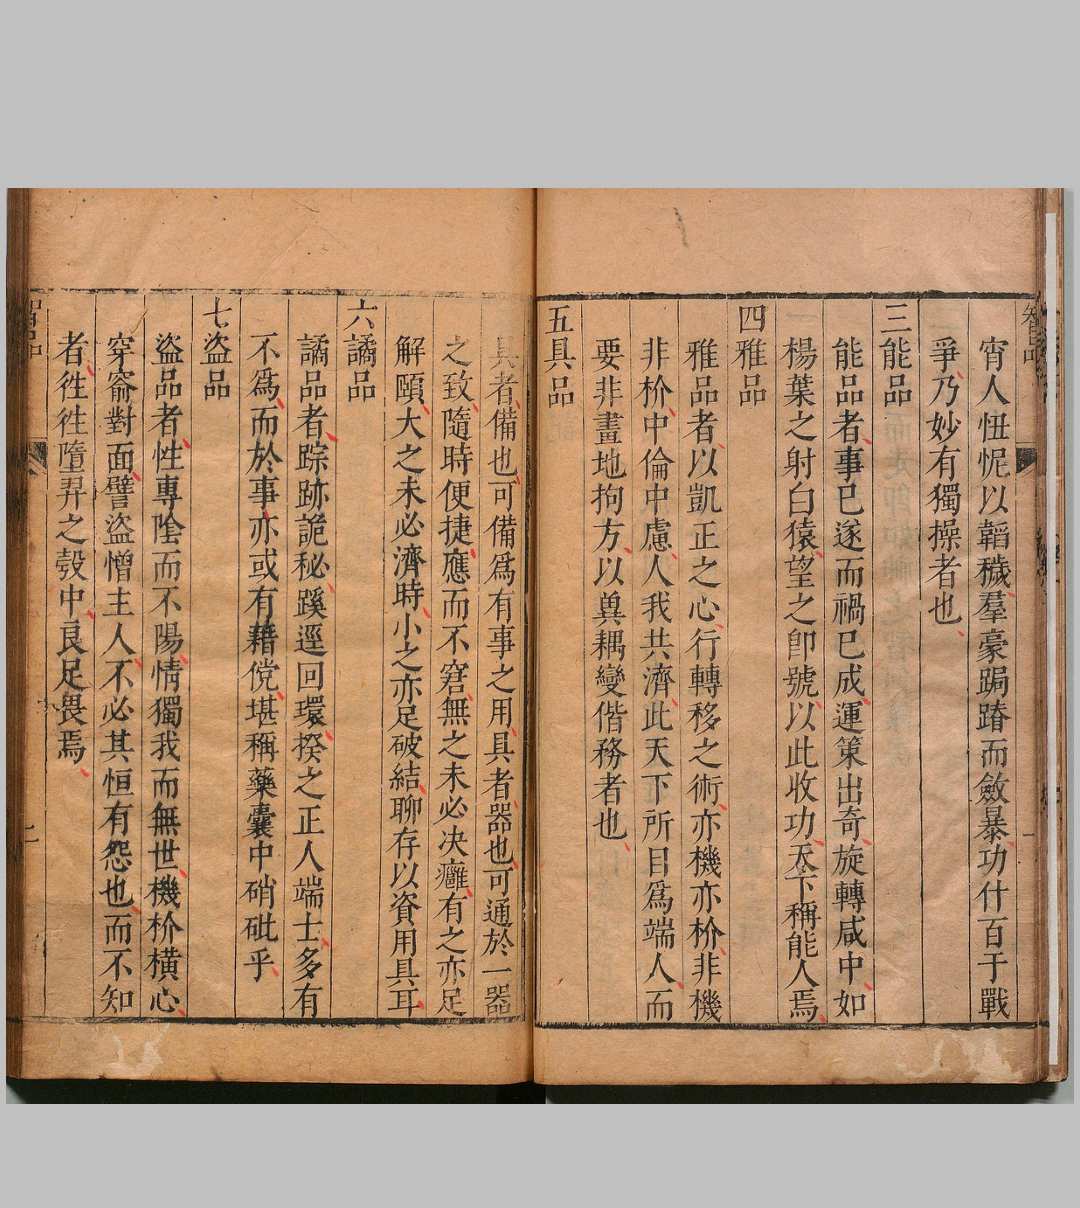 智品
宵人忸怩以韜穢羣豪跼蹐而斂暴功什百于戰
爭乃妙有獨操者也
三能品
能品者事已遂而禍已成運策出奇旋轉咸中如
楊葉之射白猿望之卽號以此收功天下稱能人焉
四雅品
雅品者以凱正之心行轉移之術亦機亦枌非機
非枌中倫中慮人我共濟此天下所目爲端人而
要非畫地拘方以巽耦變偕務者也
五具品
具者備也可備爲有事之用具者器也可通於一器
之致隨時便捷應而不窘無之未必决癰有之亦足
解頤大之未必濟時小之亦足破結聊存以資用具耳
六譎品
譎品者踪跡詭秘蹊逕回環揆之正人端士多有
不爲而於事亦或有藉儻堪稱藥囊中硝砒乎
七盗品
盗品者性專陰而不陽情獨我而無世機枌橫心
穿窬對面譬盗憎主人不必其恒有怨也而不知
者徃徃墮羿之彀中良足畏焉
智品